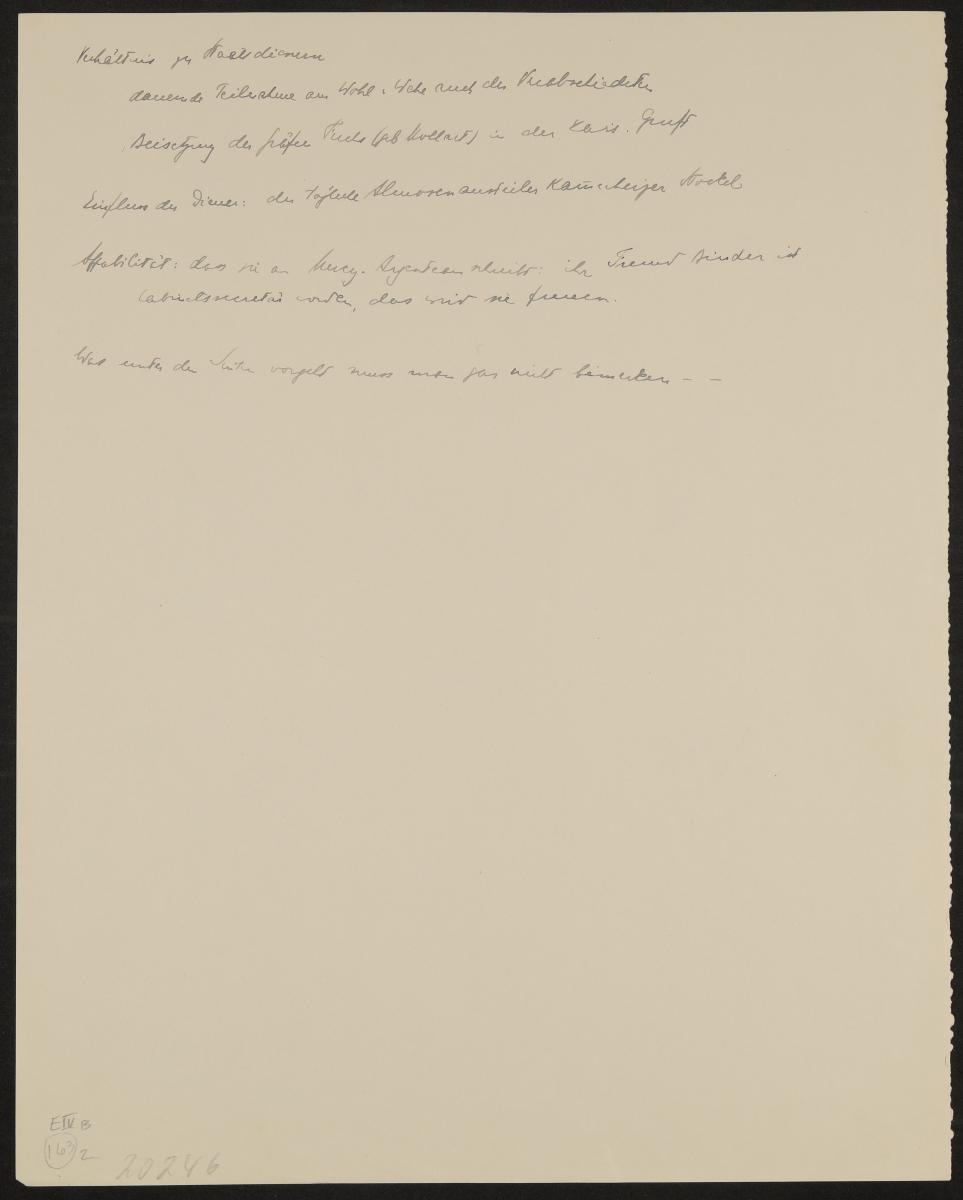 Verhältnis zu Staatsdienern
dauernde Teilnahme am Wohl u Wehe auch der Verabschiedeten
Beisetzung der Gräfin Fuchs (geb Mollart) in der Kais. Gruft
Einfluss der Diener: der tägliche Almosenausteiler Kammerheizer Stockel
Affabilität: dass sie an Mercy-Argenteau schreibt: ihr Freund Binder ist
Cabinetssecretär worden, das wird sie freuen.
Was unter den vorgeht muss man gar nicht bemerken – –
E IV B
163 2
20246